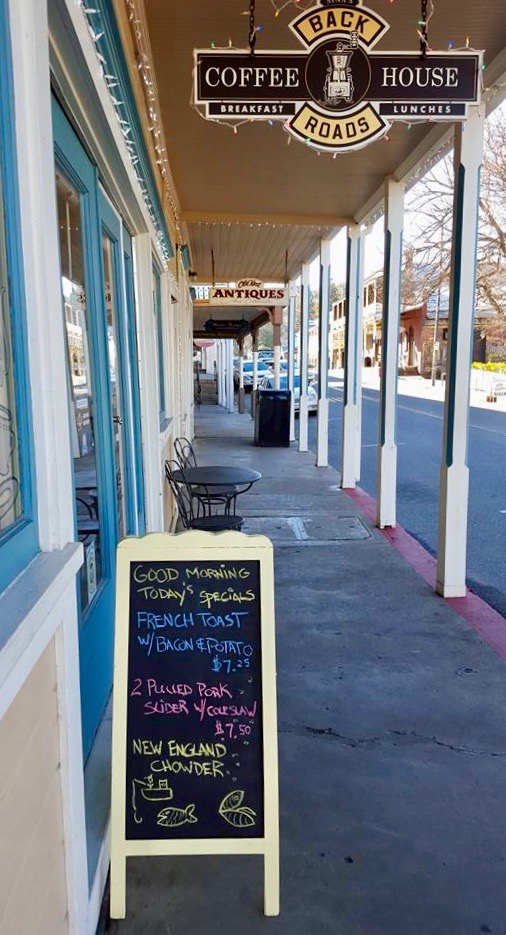 BACK
COFFEE HOUSE
BREAKFAST LUNCHES
ROADS
ANTIQUES
GOOD MORNING
TODAY'S SPECIALS
FRENCH TOAST
W/BACON & POTATO
$7.25
2 PULLED PORK
SLIDER W/COLESLAW
$7.50
NEW ENGLAND
CHOWDER.